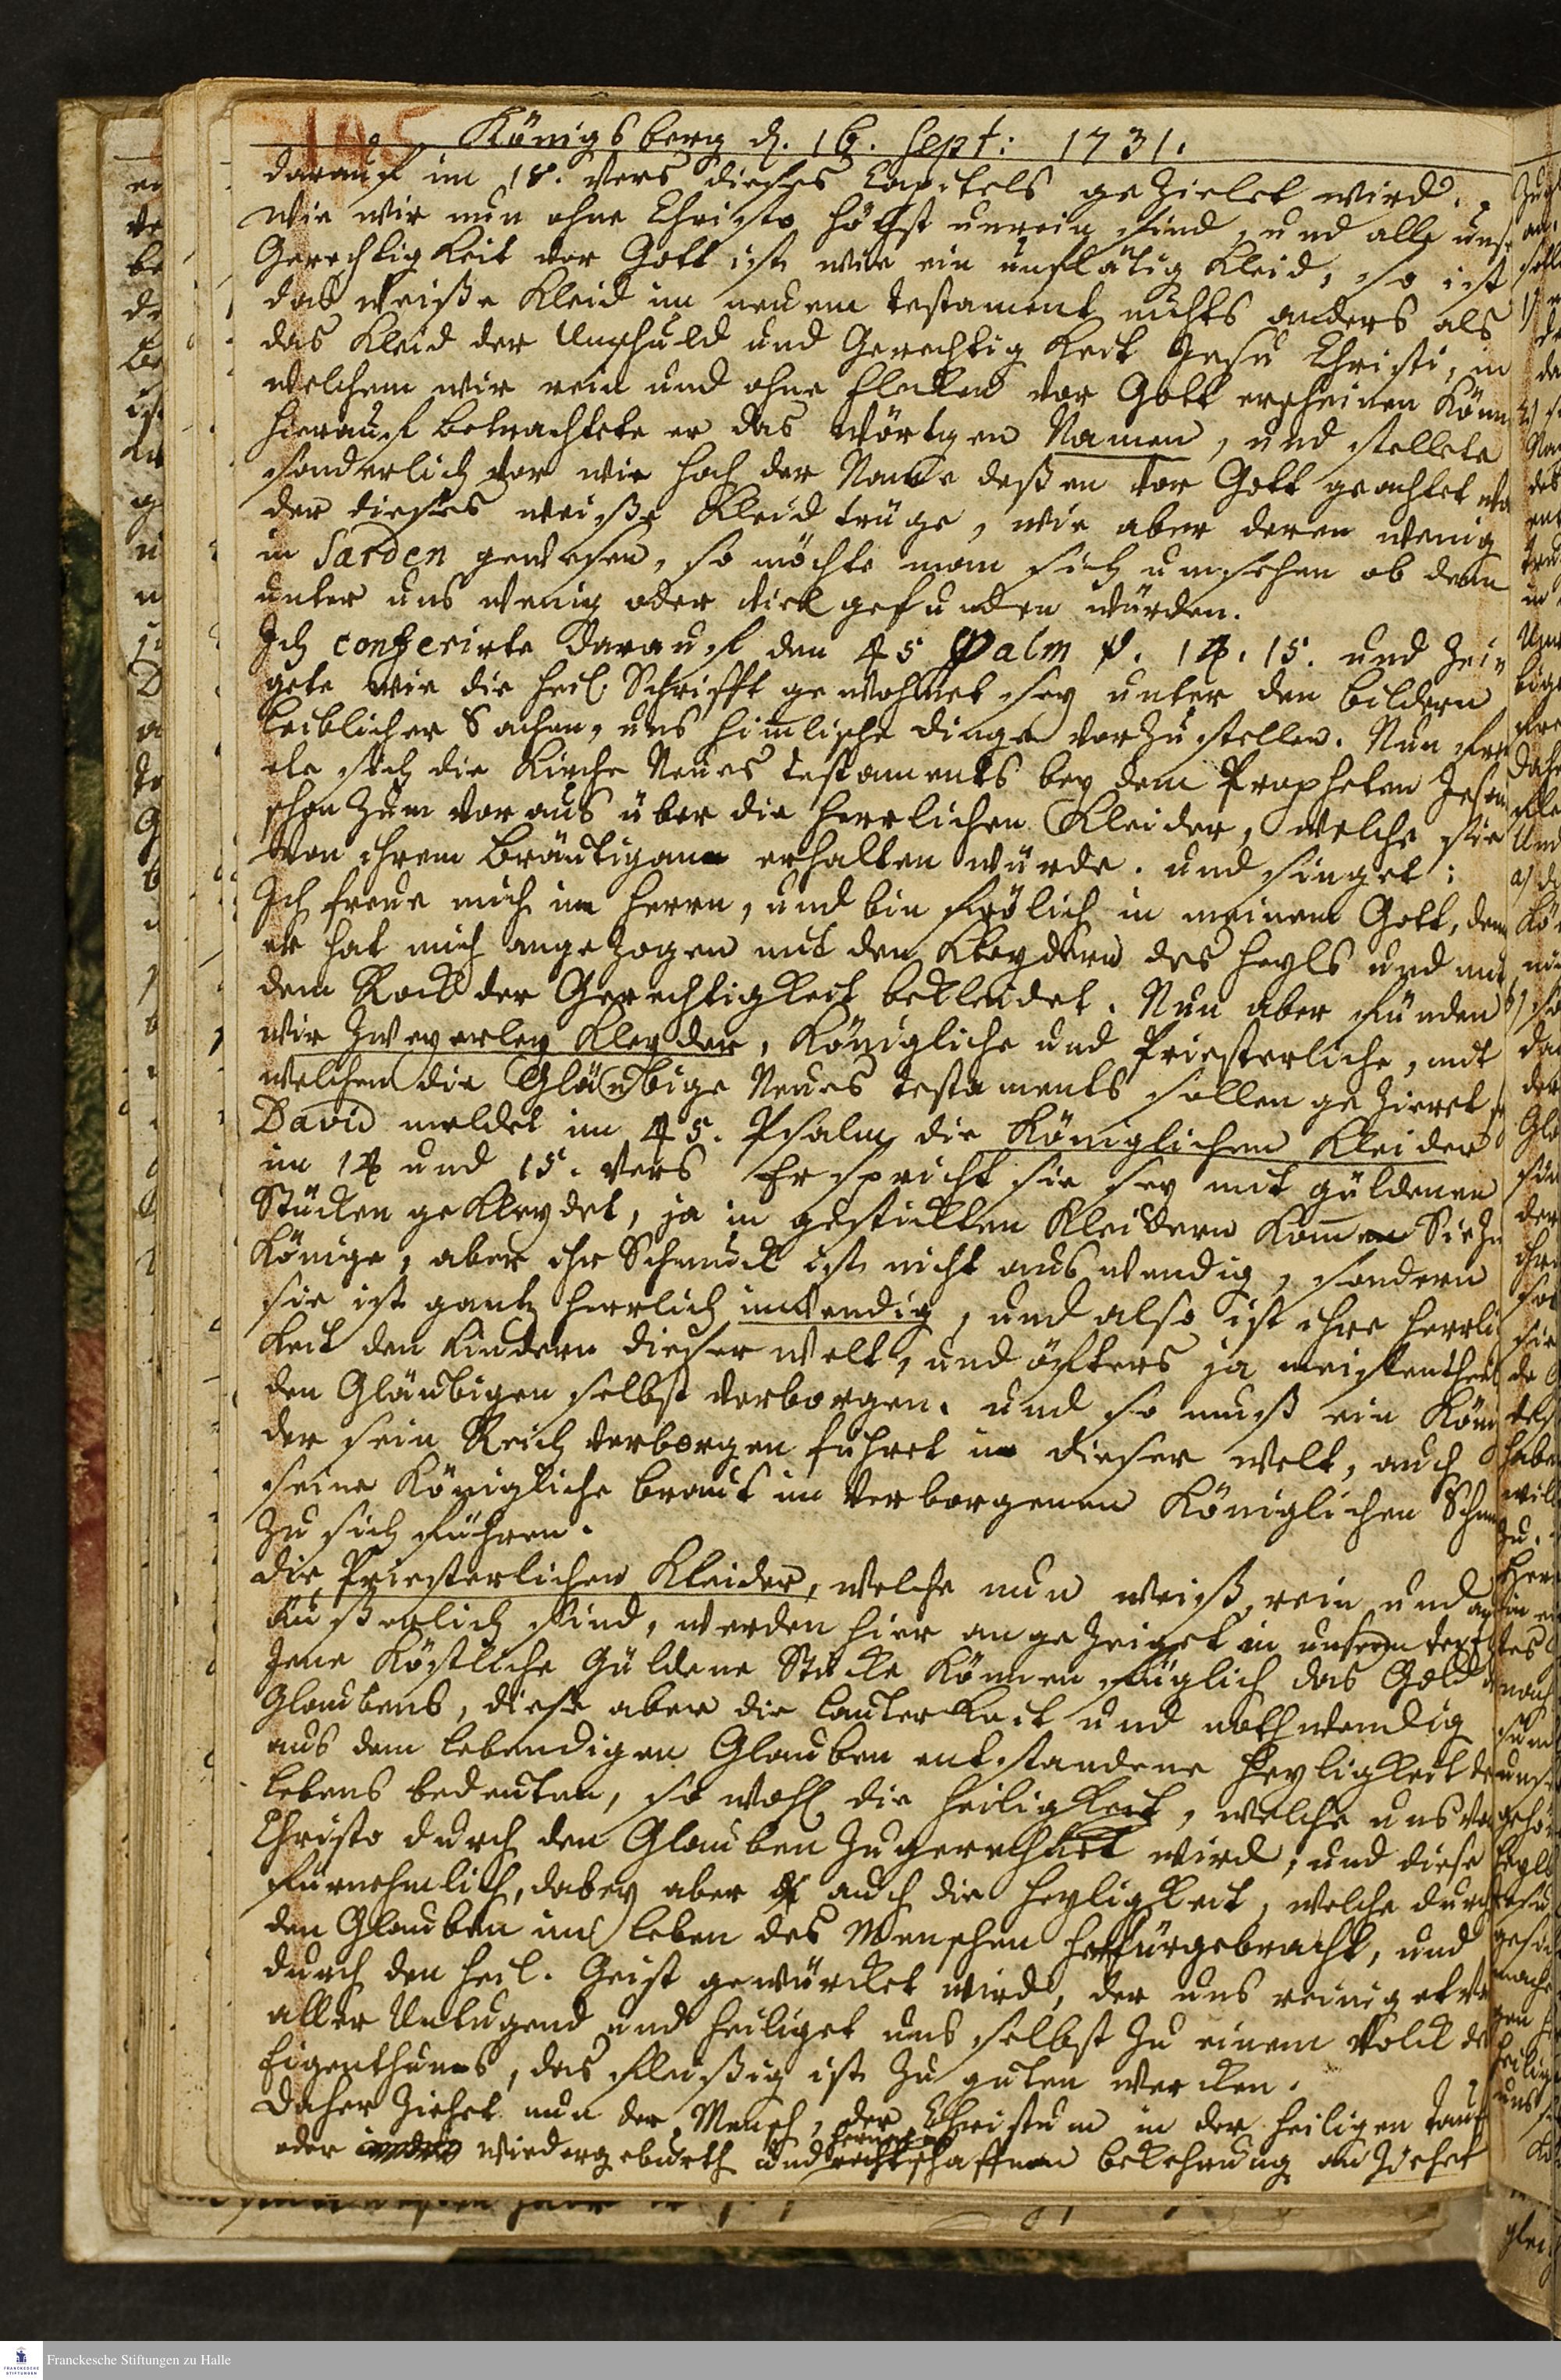 195
Königsberg d. 16. Sept: 1731.
darauf im 18. Vers dieses Capitels gezielet wird.
Wie wir nun ohne Christo höchst unrein sind, und alle unsr
Gerechtigkeit vor Gott ist wie ein unflätig Kleid, so ist
das weiße Kleid im neuem Testament nichts anders als
das Kleid der Unschuld und Gerechtigkeit Jesu Christi, in
welchem wir rein und ohne Flecken vor Gott erscheinen könn
Hierauf betrachtete er das Wörtgen Namen, und stellete
sonderlich vor wie hoch der Name deßen vor Gott geachtet
der dieses weiße Kleid trüge, wie aber deren wenig
in Sarden gewesen, so möchte man sich umsehen ob denn
unter uns wenig oder viel gefunden würden.
Ich conferirte darauf den 45 Psalm v. 14. 15. und zei
gete wie die heil. Schrifft gewohnet sey unter den bildern
leiblicher Sachen, uns himlische dinge vorzustellen. Nun fre
ete sich die Kirche Neues Testaments bey dem Propheten Jesai
schon zum voraus über die herrlichen Kleider, welche sie
von ihrem Bräutigam erhalten würde. und singet:
Ich freue mich im Herrn, und bin frölich in meinem Gott, denn
er hat mich angezogen mit den Kleydern des Heyls und mit
dem Rock der Gerechtigkeit bekleidet. Nun aber fünden
wir zweyerley Kleyder, Königliche und Priesterliche, mit
welchen die Gläubige Neues Testaments sollen gezieret
David meldet im 45. Psalm die Königlichen Kleider
im 14 und 15. Vers Er spricht sie sey mit güldenen
Stücken gekleydet, ja in gestickten Kleidern komme Sie zu
Könige, aber ihr Schmuck ist nicht auswendig, sondern
sie ist gantz herrlich inwendig, und also ist ihre Herrli
keit den Kindern dieser Welt, und öffters ja meistentheil
den Gläubigen selbst verborgen. und so muß ein Köni
der sein Reich verborgen führet in dieser Welt, auch
seine Königliche Braut im verborgenen Königlichen Schmu
zu sich führen.
Die Priesterlichen Kleider, welche nun weiß, rein und
äußerlich sind, werden hier angezeiget in unserm Text
Jene Köstliche Güldene Stücke können füglich das Gold
Glaubens, diese aber die Lauterkeit und nothwendig
aus dem lebendigen Glauben entstandene Heyligkeit des
Lebens bedeuten, so wohl die Heiligkeit, welche uns von
Christo durch den Glauben zugerechnet wird, und diese
fürnehmlich, dabey aber auch die Heyligkeit, welche durch
den Glauben ins Leben des Menschen herfürgebracht, und
durch den heil. Geist gewürcket wird, der uns reiniget von
aller Untugend und heiliget uns selbst zu einem Volck des
Eigenthums, das fleißig ist zu guten wercken.
Daher ziehet nun der Mensch, der Christum in der heiligen Tauf
oder wiedergeburth und rechtschaffnen bekehrung anziehet
Franckesche Stiftungen zu Halle